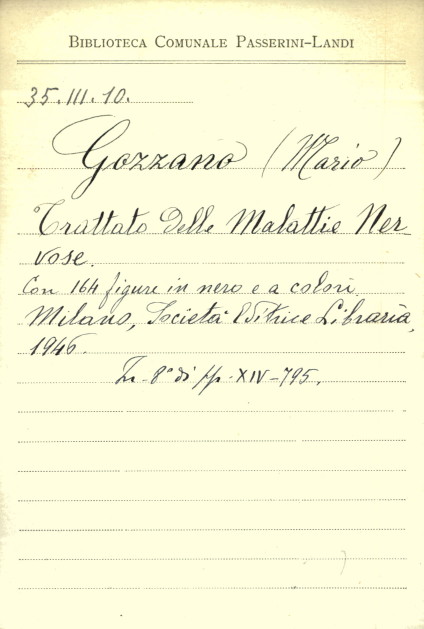 BIBLIOTECA COMUNALE PASSERINI-LANDI
35.III.10.
Gozzano (Mario)
Trattato delle Malattie Ner-
vose.
Con 164 figure in nero e a colori
Milano, Società Editrice Libraria,
1946.
In-8° di pp. XIV-795.